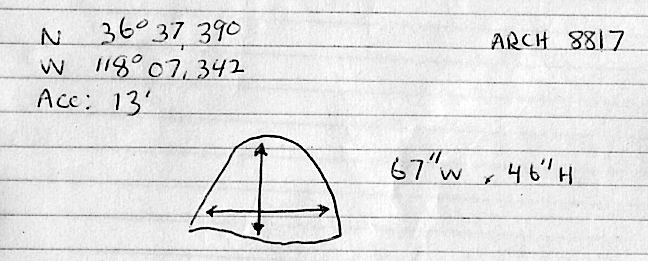 N 36° 37, 390
ARCH 8817
W 118° 07, 342
Acc: 13'
67"W × 46"H